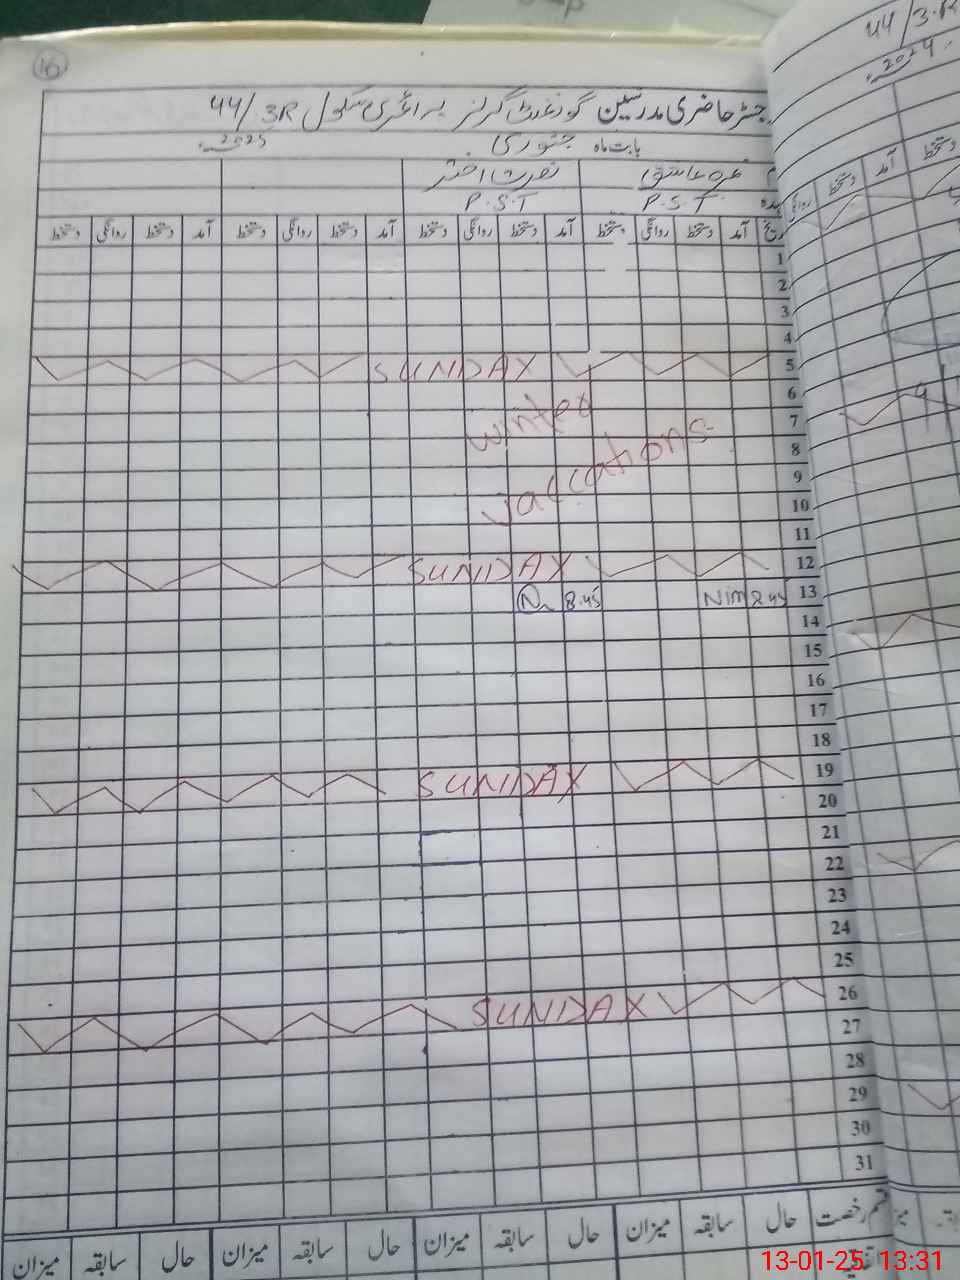 16
رجسٹر حاضری مدرسین گورنمنٹ گرلز پرائمری سکول 44/3R
بابت ماہ جنوری 2025
نصرت اختر
P.S.T P.S.T
تاریخ آمد دستخط روانگی دستخط آمد دستخط روانگی دستخط آمد دستخط روانگی دستخط آمد دستخط روانگی دستخط
1
2
3
4
5 SUNDAY
6
winter
7
8
vaccations
9
10
11
12 SUNDAY
13 8.45 8.45
14
15
16
17
18
19 SUNDAY
20
21
22
23
24
25
26 SUNDAY
27
28
29
30
31
قسم رخصت حال سابقہ میزان حال سابقہ میزان حال سابقہ میزان حال سابقہ میزان
44/3.R
2024
آمد دستخط
روانگی دستخط
13-01-25 13:31